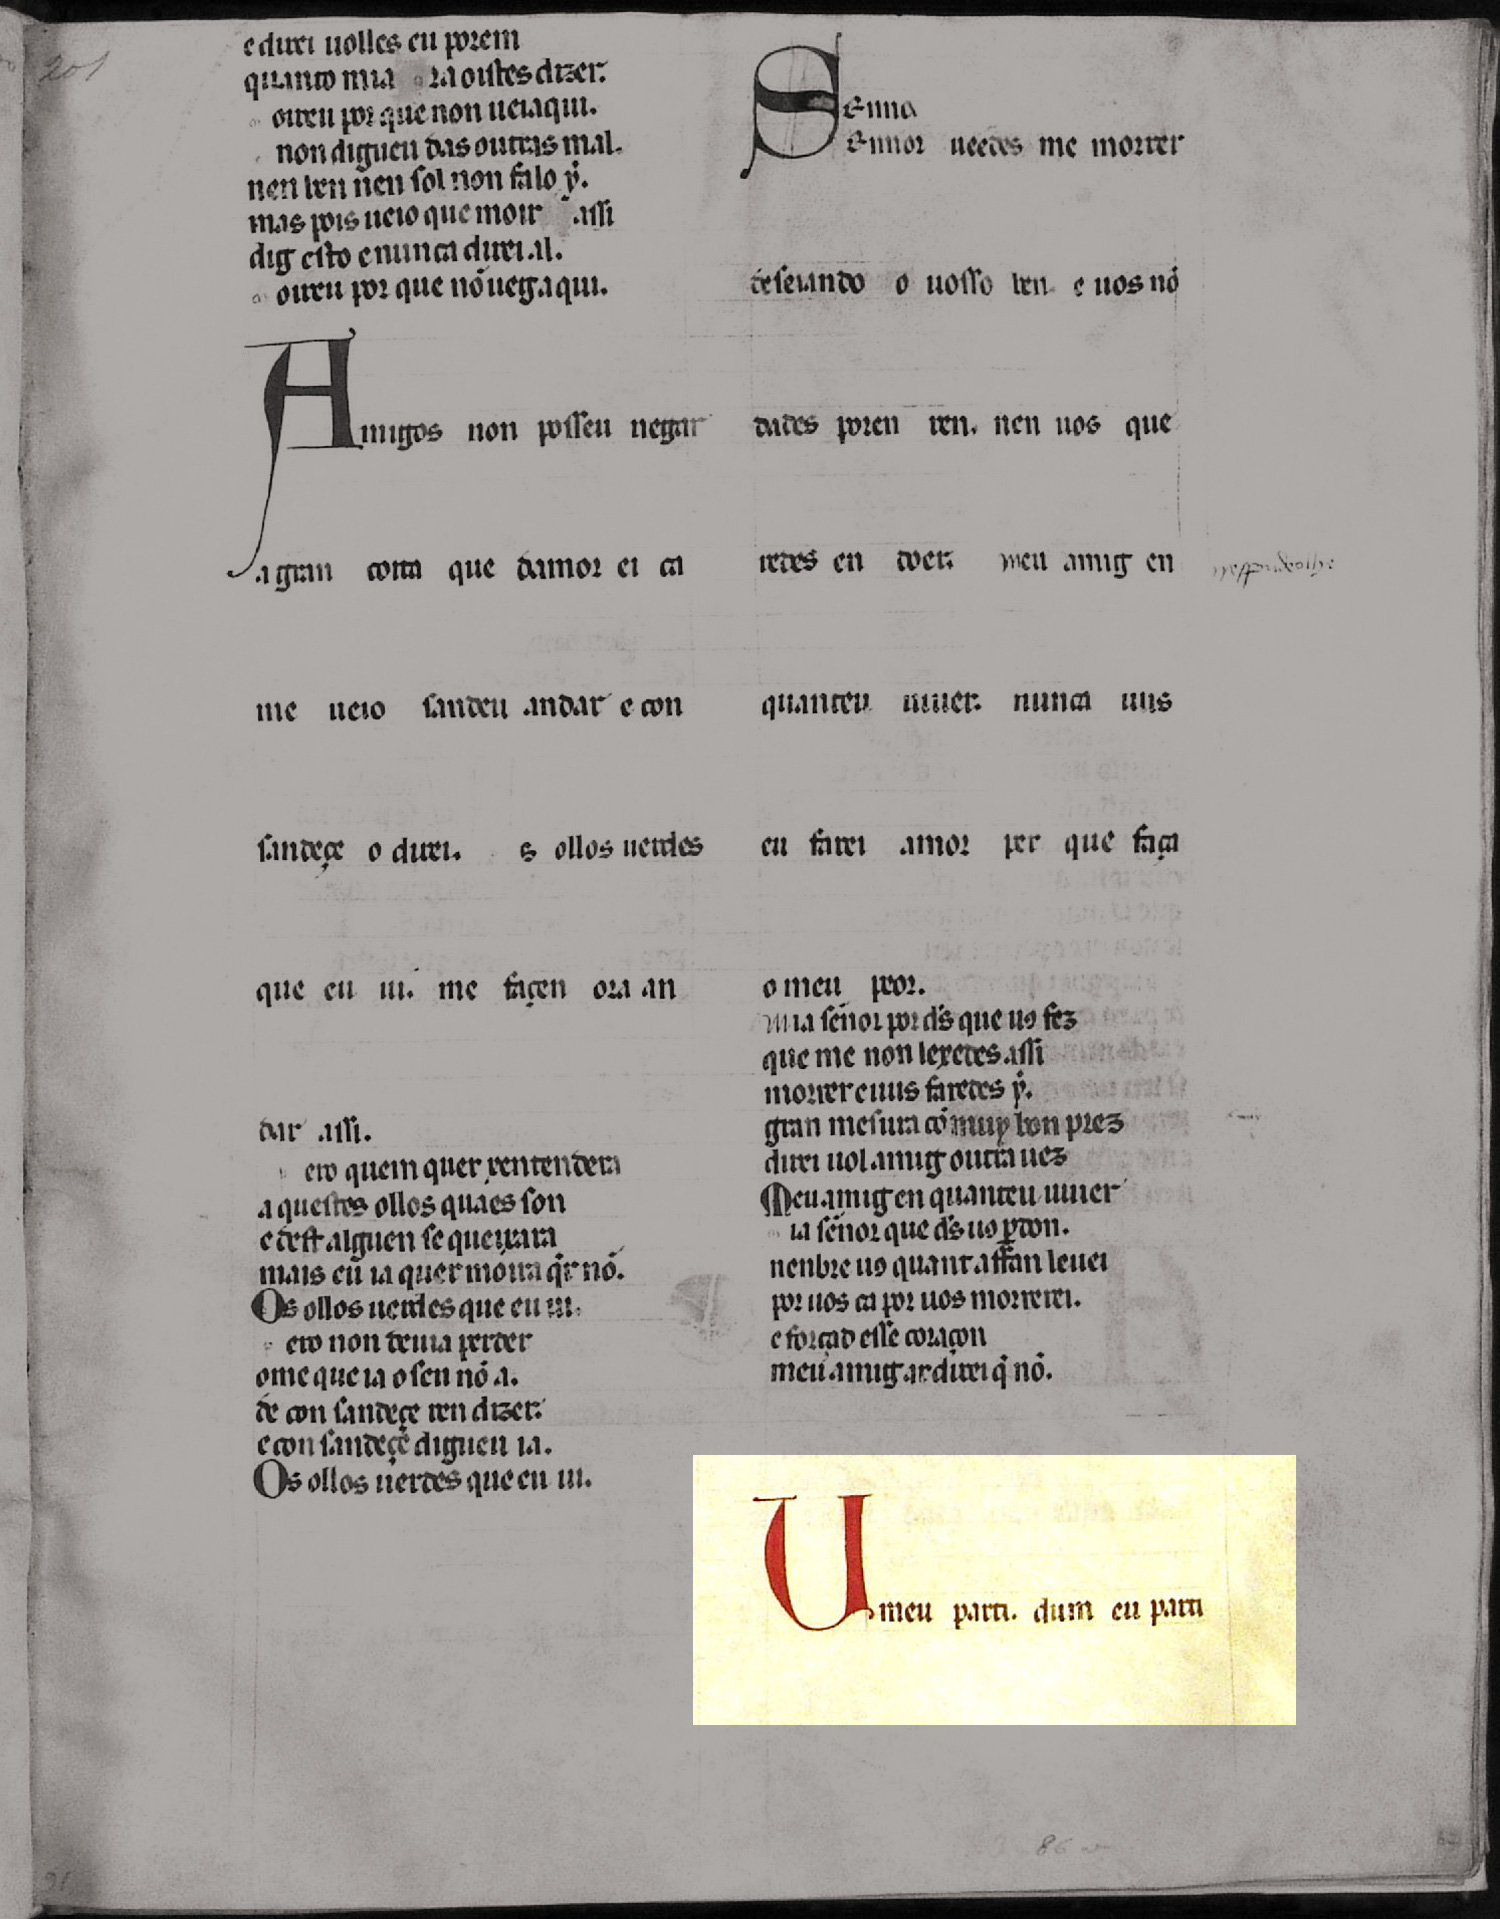 201
e direi uolles eu porem
quanto mia ora oistes dizer.
oireu por que non ueiaqui.
non digueu das outras mal.
nen ben nen sol non falo y.
mas pois ueio que moir assi
dig esto e nunca direi al.
oireu por que nõ ueg aqui.
Amigos non posseu negar
a gran coita que damor ei ca
me ueio sandeu andar e con
sandeçe o direi. s ollos uerdes
que eu ui. me façen ora an
dar assi.
ero quem quer xentendera
aquestes ollos quaes son
e dest alguen se queixara
mais eu ia quer moira q̇r nõ.
Os ollos uerdes que eu ui.
ero non deuia perder
ome que ia o sen nõ a.
de con sandeçe ren dizer.
e con sandeçe digueu ia.
Os ollos uerdes que eu ui.
Senna
ennor ueedes me morrer
deseiando o uosso ben e uos nõ
dades poren ren. nen uos que
redes en doer. meu amig en
quanteu uiuer. nunca uus
eu farei amor per que faça
o meu peor.
mia señor por d̃s que uꝯ fez
que me non lexedes assi
morrer e uus faredes y.
gran mesura cõ muy bon prez
direi uol amig outra uez
Meu amig en quanteu uiuer
ia señor que d̃s uꝯ ꝑdon.
nenbre uꝯ quant affan leuei
por uos ca por uos morrerei.
e forçad esse coraçon
meu amig ar direi q̇ nõ.
Umeu parti. dum eu parti
86